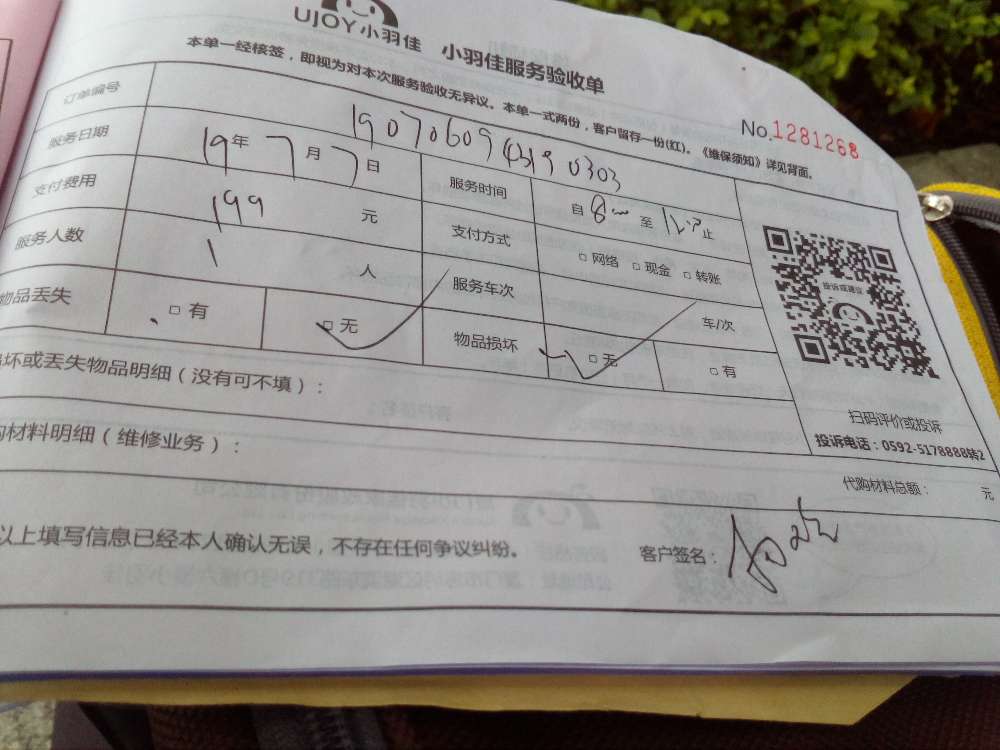 UJOY小羽佳 小羽佳服务验收单
本单一经核签，即视为对本次服务验收无异议。本单一式两份，客户留存一份(红)。《维保须知》详见背面。
No.1281268
订单编号
服务日期 19年7月7日 服务时间 自8 至 止
支付费用 199元 支付方式 □网络 □现金 □转账
服务人数 1人 服务车次 车/次
物品丢失 □有 □无 物品损坏 □无 □有
投诉或建议
扫码评价或投诉
投诉电话：0592-5178888转2
坏或丢失物品明细（没有可不填）：
购材料明细（维修业务）：
代购材料总额： 元
以上填写信息已经本人确认无误，不存在任何争议纠纷。 客户签名：